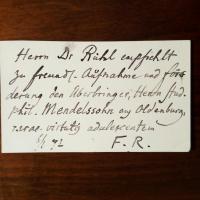 Herrn Dr Rühl empfiehlt
zu freundl. Aufnahme und För=
derung den Überbringer, Herrn Stud.
phil. Mendelssohn aus Oldenburg,
rarae virtutis adulescentem
F. R.